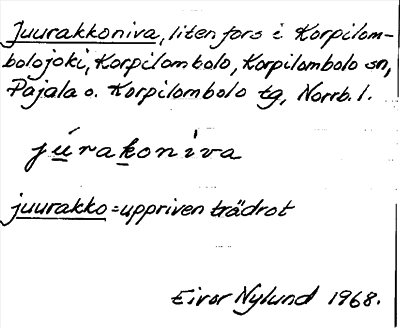 Juurakkoniva, liten fors i Korpilom-
bolojoki, Korpilombolo, Korpilombolo sn,
Pajala o. Korpilombolo tg, Norrb. l.
júrakoniva
juurakko = uppriven trädrot
Eivor Nylund 1968.